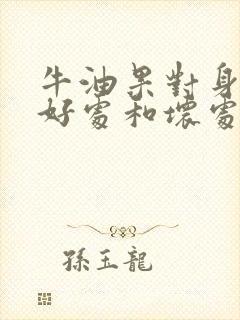 牛油果對身
好處和壞處
孫玉龍